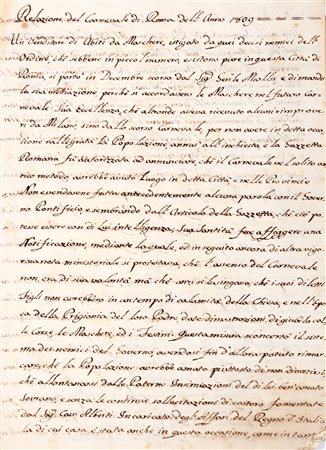 Relazione del Carnevale di Roma dell'Anno 1809
Un Venditore di Abiti da Maschere, istigato da quei decisi nemici dell'
Ordine, che sebbene in piccol numero, esistono pure in questa Città di
Roma, si portò in Dicembre scorso dal Sig. Genle Miollis, e diman-
dò la sua mediazione perchè si accordassero le Maschere nel futuro Car-
nevale. Sua Eccellenza, che altronde aveva ricevuto alcuni rimprove-
ri da Milano, sino dallo scorso Carnevale, per non avere in detta occa-
sione rallegrata la Popolazione, annuì all'inchiesta, e la Gazzetta
Romana fu autorizzata ad annunciare, che il Carnevale nel solito an-
tico metodo, avrebbe avuto Luogo in detta Città, e nelle Provincie.
Non essendosene fatta antecedentemente alcuna parola con il Gover-
no Pontificio, e sembrando dall'Articolo della Gazzetta, che ciò po-
tesse essere con di Lui intelligenza, Sua Santità fece affiggere una
Notificazione, mediante la quale, ed in seguito ancora di altra vigo-
rosa nota ministeriale si protestava, che l'evento del Carnevale
non era di sua volontà, ma che anzi si lusingava, che i suoi diletti
Figli non avrebbero in un tempo di calamità della Chiesa, e nell'Epo-
ca della Prigionia del loro Padre, date dimostrazioni di giubilo col-
le Corse, le Maschere, ed i Festini. Questa misura sconcertò il siste-
ma dei nemici del Governo, avendosi fin d'allora potuto rimar-
care, che la Popolazione avrebbe amato piuttosto di non divertirsi,
che allontanarsi dalle Paterne Insinuazioni del di lei ben amato
Sovrano, e senza le continue sollecitazioni di certuno fomentate
dal Sig. Cav. Alberti, Incaricato degli Affari del Regno d'Italia,
la di cui casa è stata anche in questa occasione, come in tante